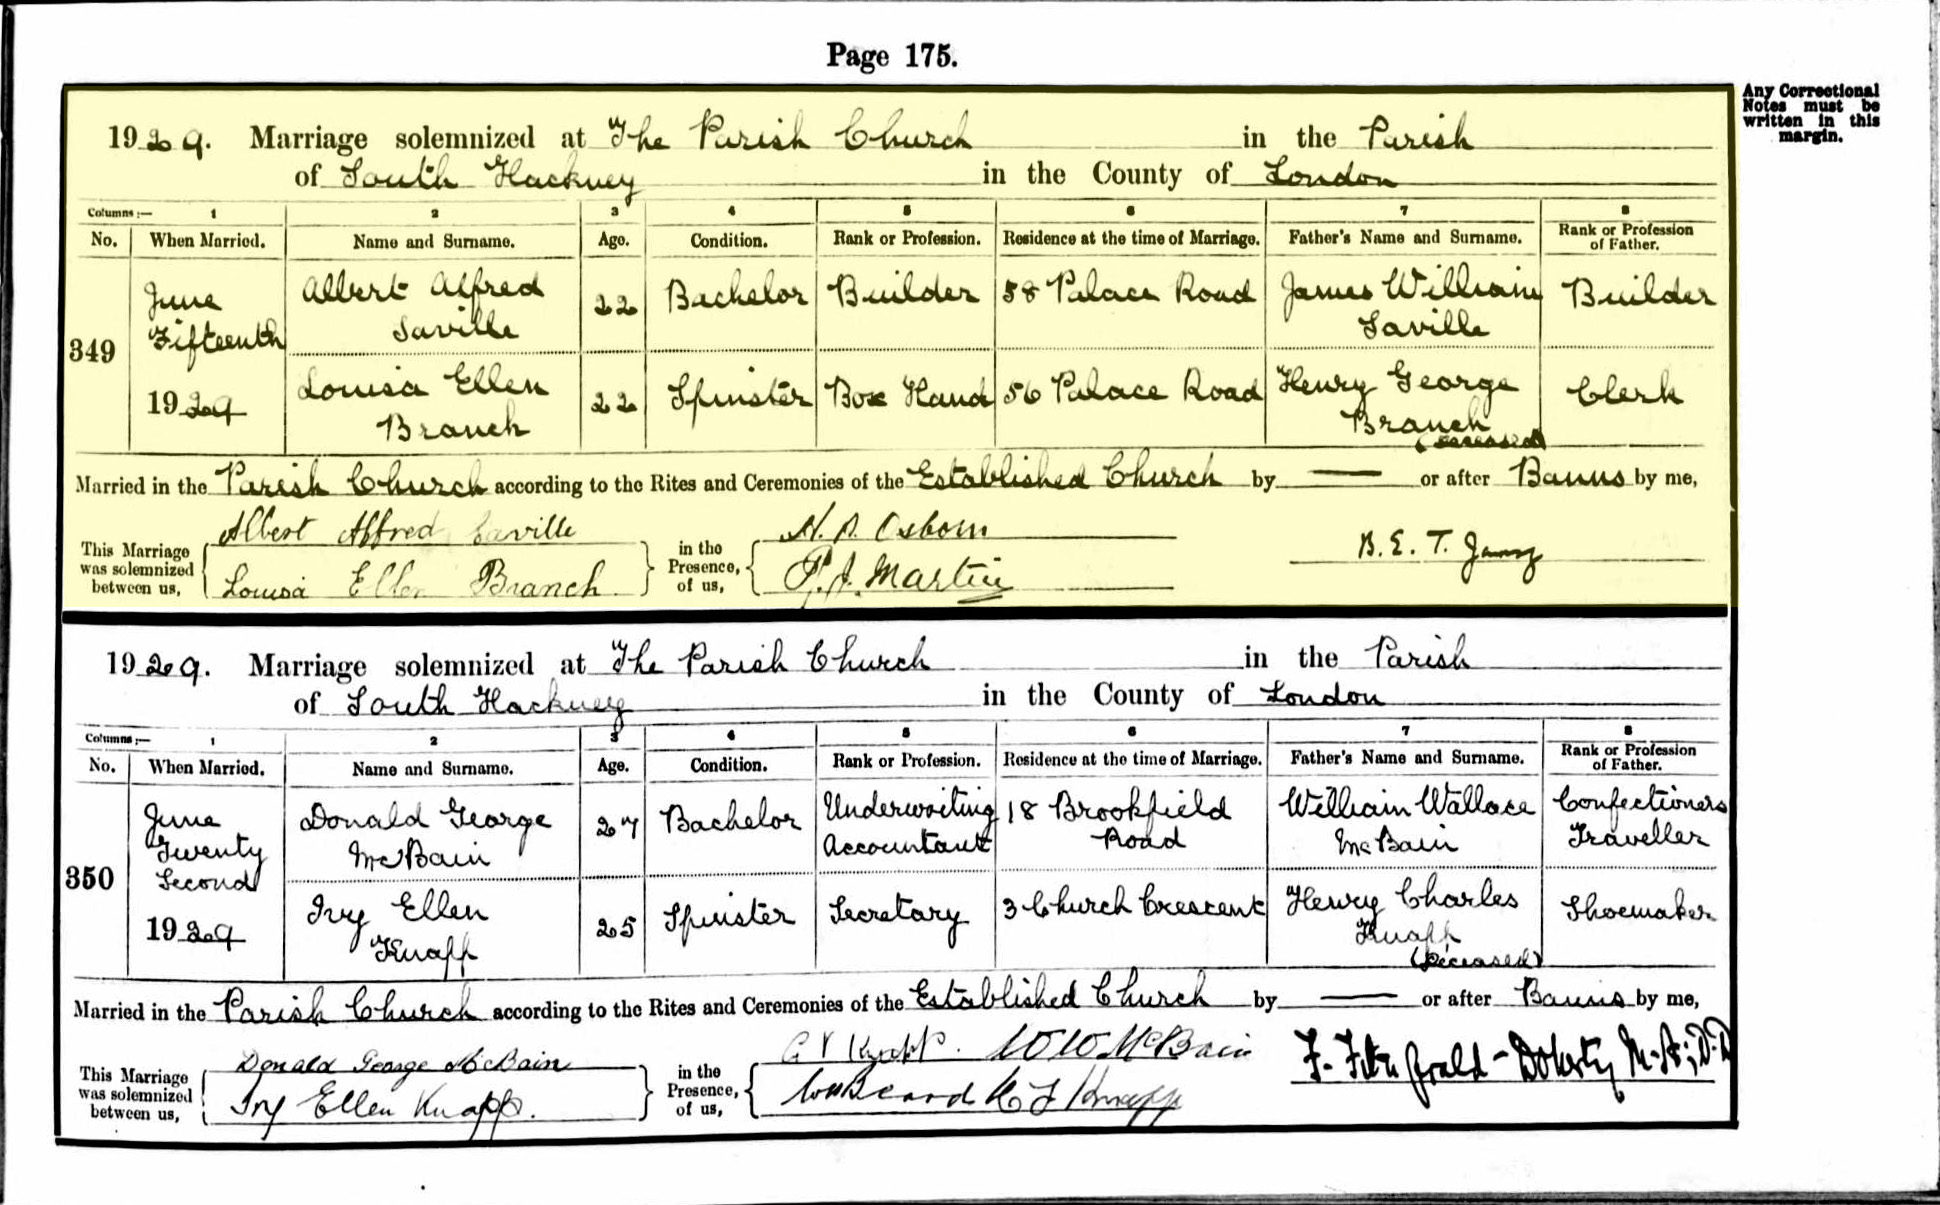 Page 175.
Any Correctional
Notes must be
written in this
margin.
1929. Marriage solemnized at The Parish Church in the Parish
of South Hackney in the County of London
Columns:— 1 2 3 4 5 6 7 8
No. When Married. Name and Surname. Age. Condition. Rank or Profession. Residence at the time of Marriage. Father's Name and Surname. Rank or Profession of Father.
349 June Fifteenth 1929
Albert Alfred Saville 22 Bachelor Builder 58 Palace Road James William Saville Builder
Louisa Ellen Branch 22 Spinster Box Hand 56 Palace Road Henry George Branch (deceased) Clerk
Married in the Parish Church according to the Rites and Ceremonies of the Established Church by — or after Banns by me,
This Marriage was solemnized between us, Albert Alfred Saville
Louisa Ellen Branch
in the Presence, of us, H. A. Osborn
P. J. Martin
B. E. T.
1929. Marriage solemnized at The Parish Church in the Parish
of South Hackney in the County of London
Columns:— 1 2 3 4 5 6 7 8
No. When Married. Name and Surname. Age. Condition. Rank or Profession. Residence at the time of Marriage. Father's Name and Surname. Rank or Profession of Father.
350 June Twenty Second 1929
Donald George McBain 27 Bachelor Underwriting Accountant 18 Brookfield Road William Wallace McBain Confectioners Traveller
Ivy Ellen Knapp 25 Spinster Secretary 3 Church Crescent Henry Charles Knapp (deceased) Shoemaker
Married in the Parish Church according to the Rites and Ceremonies of the Established Church by — or after Banns by me,
This Marriage was solemnized between us, Donald George McBain
Ivy Ellen Knapp.
in the Presence, of us, Knapp. W W McBain
Beard Knapp
F. Fitzgerald-Doherty M.A; D.D